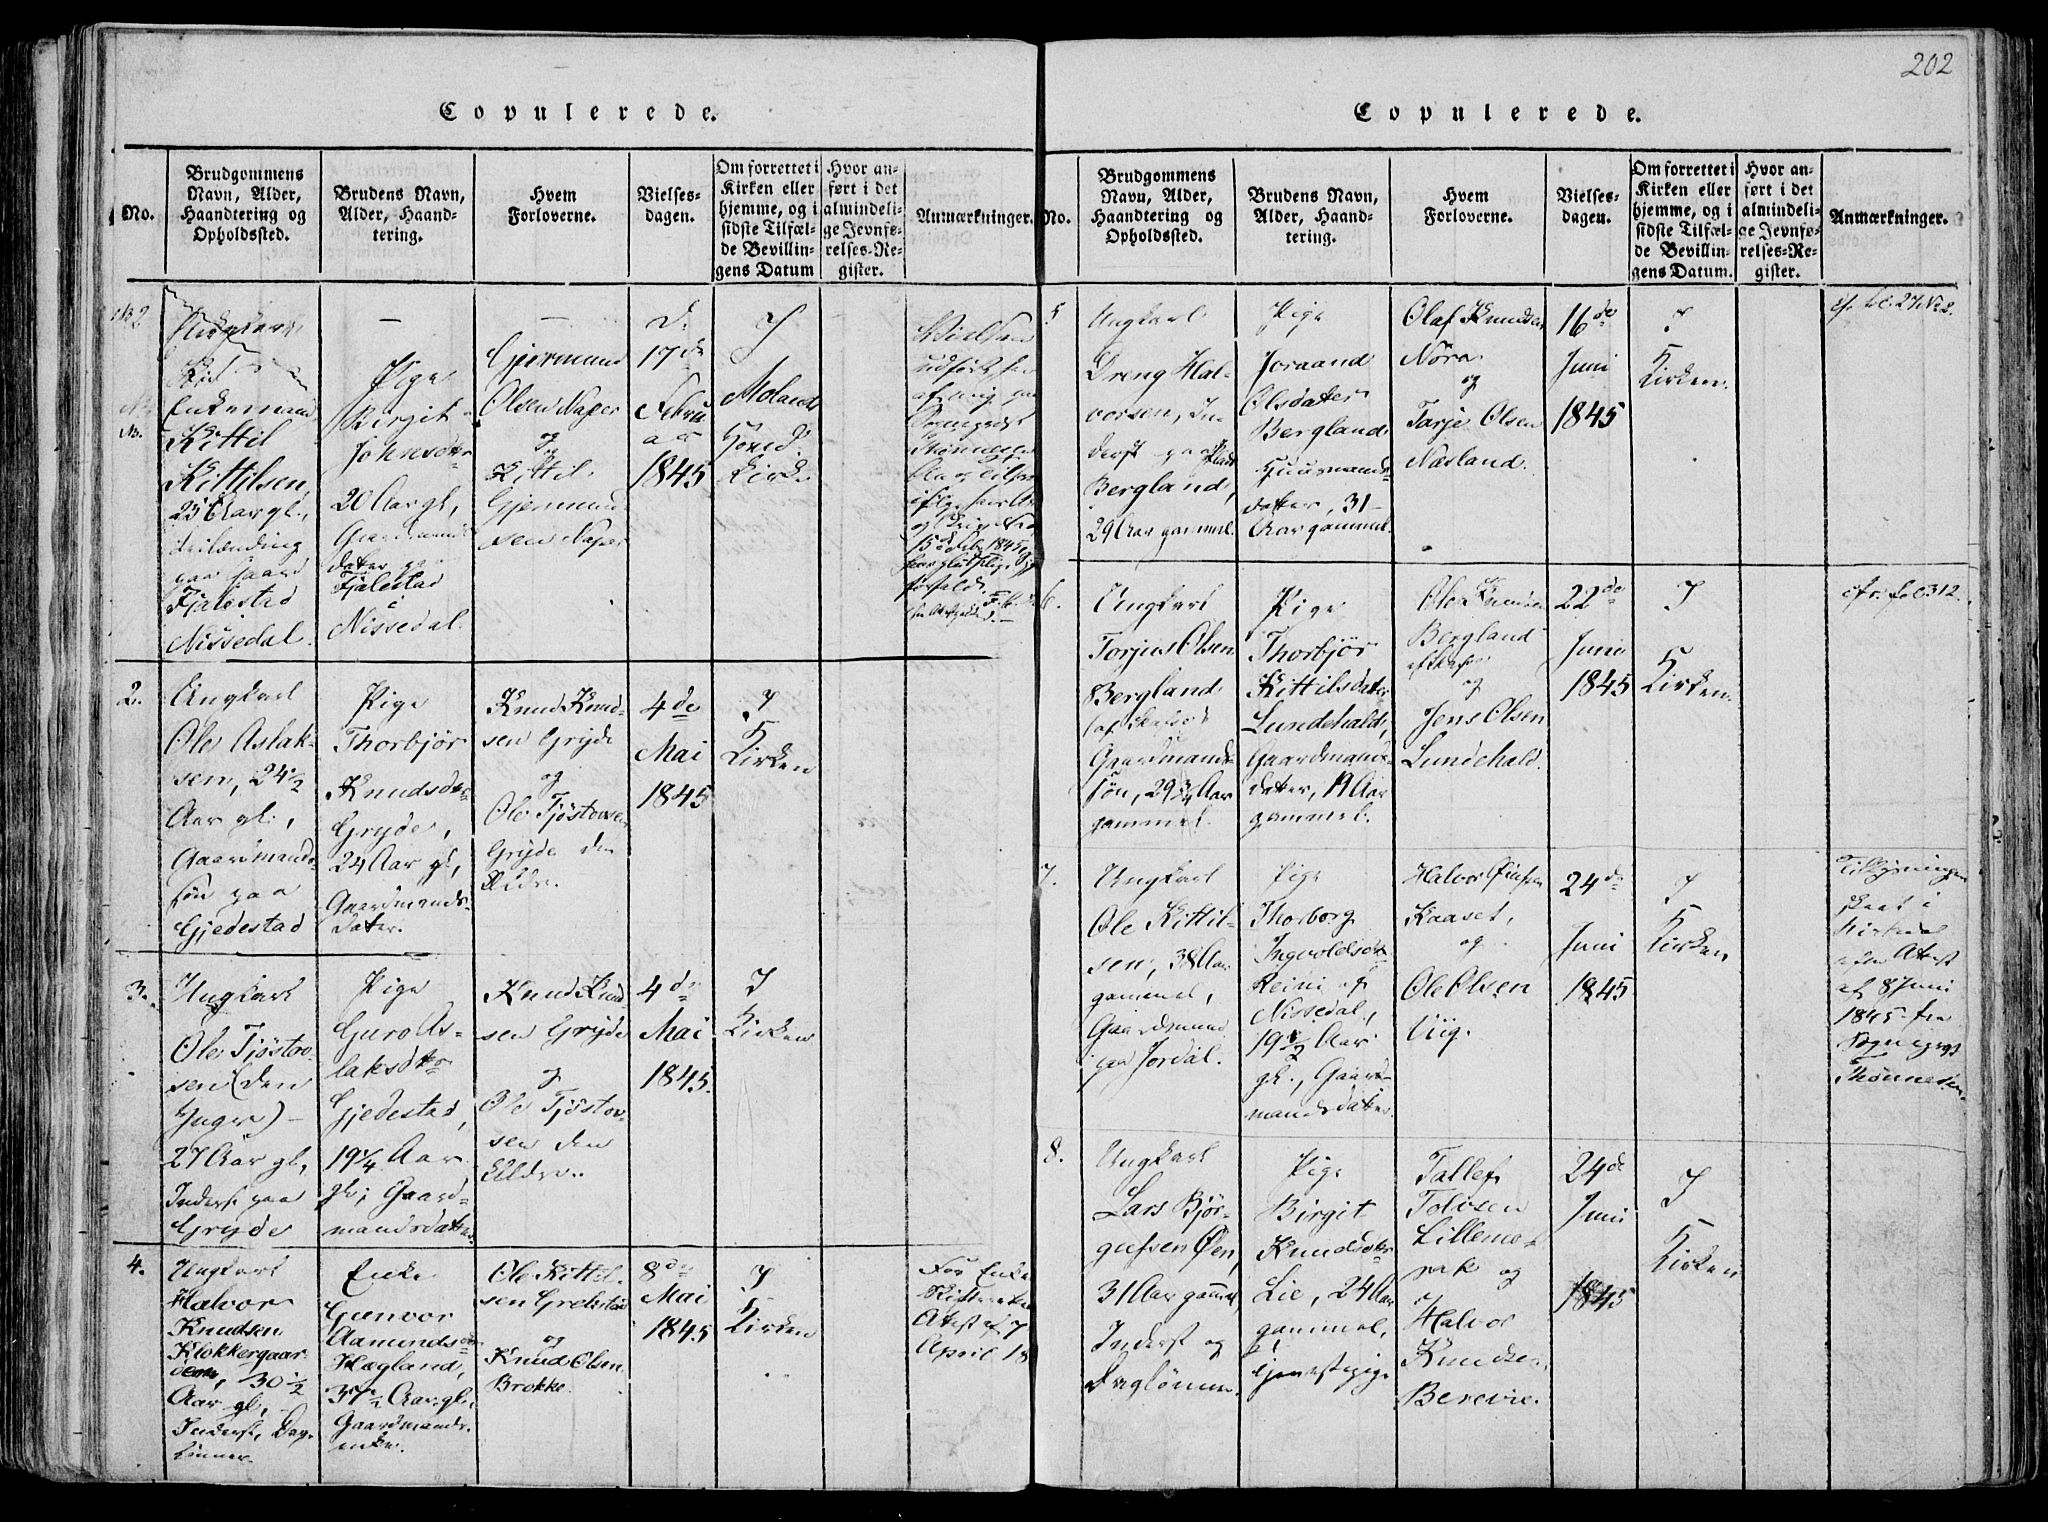 202
Copulerede.
No.
Brudgommens
Navn, Alder,
Haandtering og
Opholdssted.
Brudens Navn,
Alder, Haand-
tering.
Hvem
Forloverne.
Vielses-
dagen.
Om forrettet i
Kirken eller
hjemme, og i
sidste Tilfæl-
de Bevillin-
gens Datum
Hvor an-
ført i det
almindeli-
ge Jevnfø-
relses-Re-
gister.
Anmærkninger.
Enkemand
Kittil
Kittilsen,
25 Aar gl.,
paa Gaard
Fjalestad
Nissedal.
—
Pige
Birgit
Johnsdtr
20 Aar gl.,
Gaardmands
dater
Fjalestad
i
Nissedal.
—
Gjermund
Olsen Naper
og
Kittil
Gjermund
sen Naper
d.
17de
Febru
ar
1845
I
Molands
Hoved
Kirke
Vielsen
udført
af mig
15de Febr. 1845
2.
Ungkarl
Ole Aslak-
sen, 24½
Aar gl.,
Gaardmands
søn paa
Gjedestad
Pige
Thorbjør
Knudsdtr
Gryde,
24 Aar gl.,
Gaardmands-
dater.
Knud Knud-
sen Gryde
og
Ole Tjøstovsen
Gryde den
Eldre.
4de
Mai
1845
I
Kirken
3.
Ungkarl
Ole Tjøstov-
sen (den
Yngre) –
27 Aar gl.,
Inderst paa
Gryde
Pige
Guro As-
laksdtr
Gjedestad,
19¼ Aar
gl., Gaard-
mandsdater.
Knud Knud
sen Gryde
og
Ole Tjøstov-
sen den
Eldre.
4de
Mai
1845.
I
Kirken
4.
Ungkarl
Halvor
Knudsen
Klokkergaar-
den, 30½
Aar gl.,
Inderst, Dag-
lønner.
Enke
Gunvor
Aamundsdtr
Hægland,
37½ Aar gl.,
Gaardmands-
enke.
Ole Kittil-
sen Grekstad
og
Knud Olsen
Brokke.
8de
Mai
1845
I
Kirken
For Enke
Skifteretten
Atest af 7
April 18
Copulerede.
No.
Brudgommens
Navn, Alder,
Haandtering og
Opholdssted.
Brudens Navn,
Alder, Haand-
tering.
Hvem
Forloverne.
Vielses-
dagen.
Om forrettet i
Kirken eller
hjemme, og i
sidste Tilfæl-
de Bevillin-
gens Datum.
Hvor an-
ført i det
almindeli-
ge Jevnfø-
relses-Re-
gister.
Anmærkninger.
5
Ungkarl
Dreng Hal-
vorsen, In-
derst paa Plads
Bergland,
29 Aar gammel.
Pige
Joraand
Olsdater
Bergland
Huusmands
dater, 31
Aar gammel.
Olaf Knudsen
Nøra
og
Tarje Olsen
Næsland.
16de
Juni
1845
I
Kirken.
6.
Ungkarl
Torjus Olsen
Bergland
Gaardmands-
søn, 29¾ Aar
gammel.
Pige
Thorbjør
Kittilsdater
Lundehald,
Gaardmands-
dater, 19 Aar
gammel.
Ole Knudsen
Bergland
og
Jens Olsen
Lundehald.
22de
Juni
1845
I
Kirken.
cfr. fol 312.
7.
Ungkarl
Ole Kittil-
sen, 38 Aar
gammel,
Gaardmand
paa Jordal.
Pige
Thorborg
Ingvoldsdtr
Reini af
Nissedal,
19½ Aar
gl., Gaard-
mandsdater.
Halvor
Kaaset,
og
Ole Olsen
Viig.
24de
Juni
1845
I
Kirken
Tillysningen
skeet i
Nissedal
efter Atest
af 8 Juni
1845 fra
Sognepræst
Thønnesen.
8.
Ungkarl
Lars Bjør-
gufsen Øen,
31 Aar gammel
Inderst og
Daglønner.
Pige
Birgit
Knudsdtr
Lie, 24 Aar
gammel,
Tjenestepige
Tallef
Tovsen
og
Halvor
Knudsen
Berevie.
24de
Juni
1845
I
Kirken